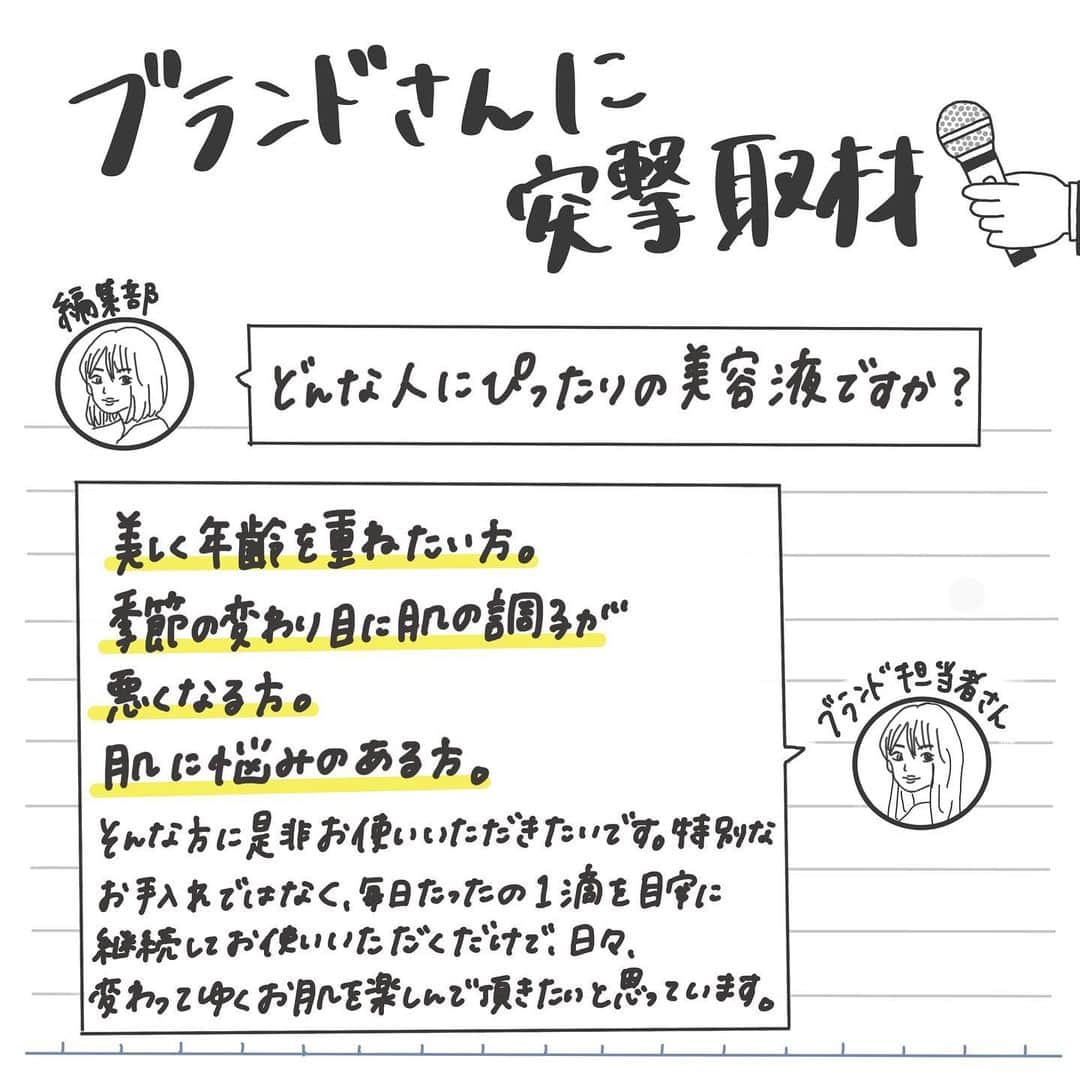 ブランドさんに
突撃取材
編集部
どんな人にぴったりの美容液ですか？
美しく年齢を重ねたい方。
季節の変わり目に肌の調子が
悪くなる方。
肌に悩みのある方。
そんな方に是非お使いいただきたいです。特別な
お手入れではなく、毎日たったの1滴を目安に
継続してお使いいただくだけで、日々、
変わってゆくお肌を楽しんで頂きたいと思っています。
ブランド担当者さん